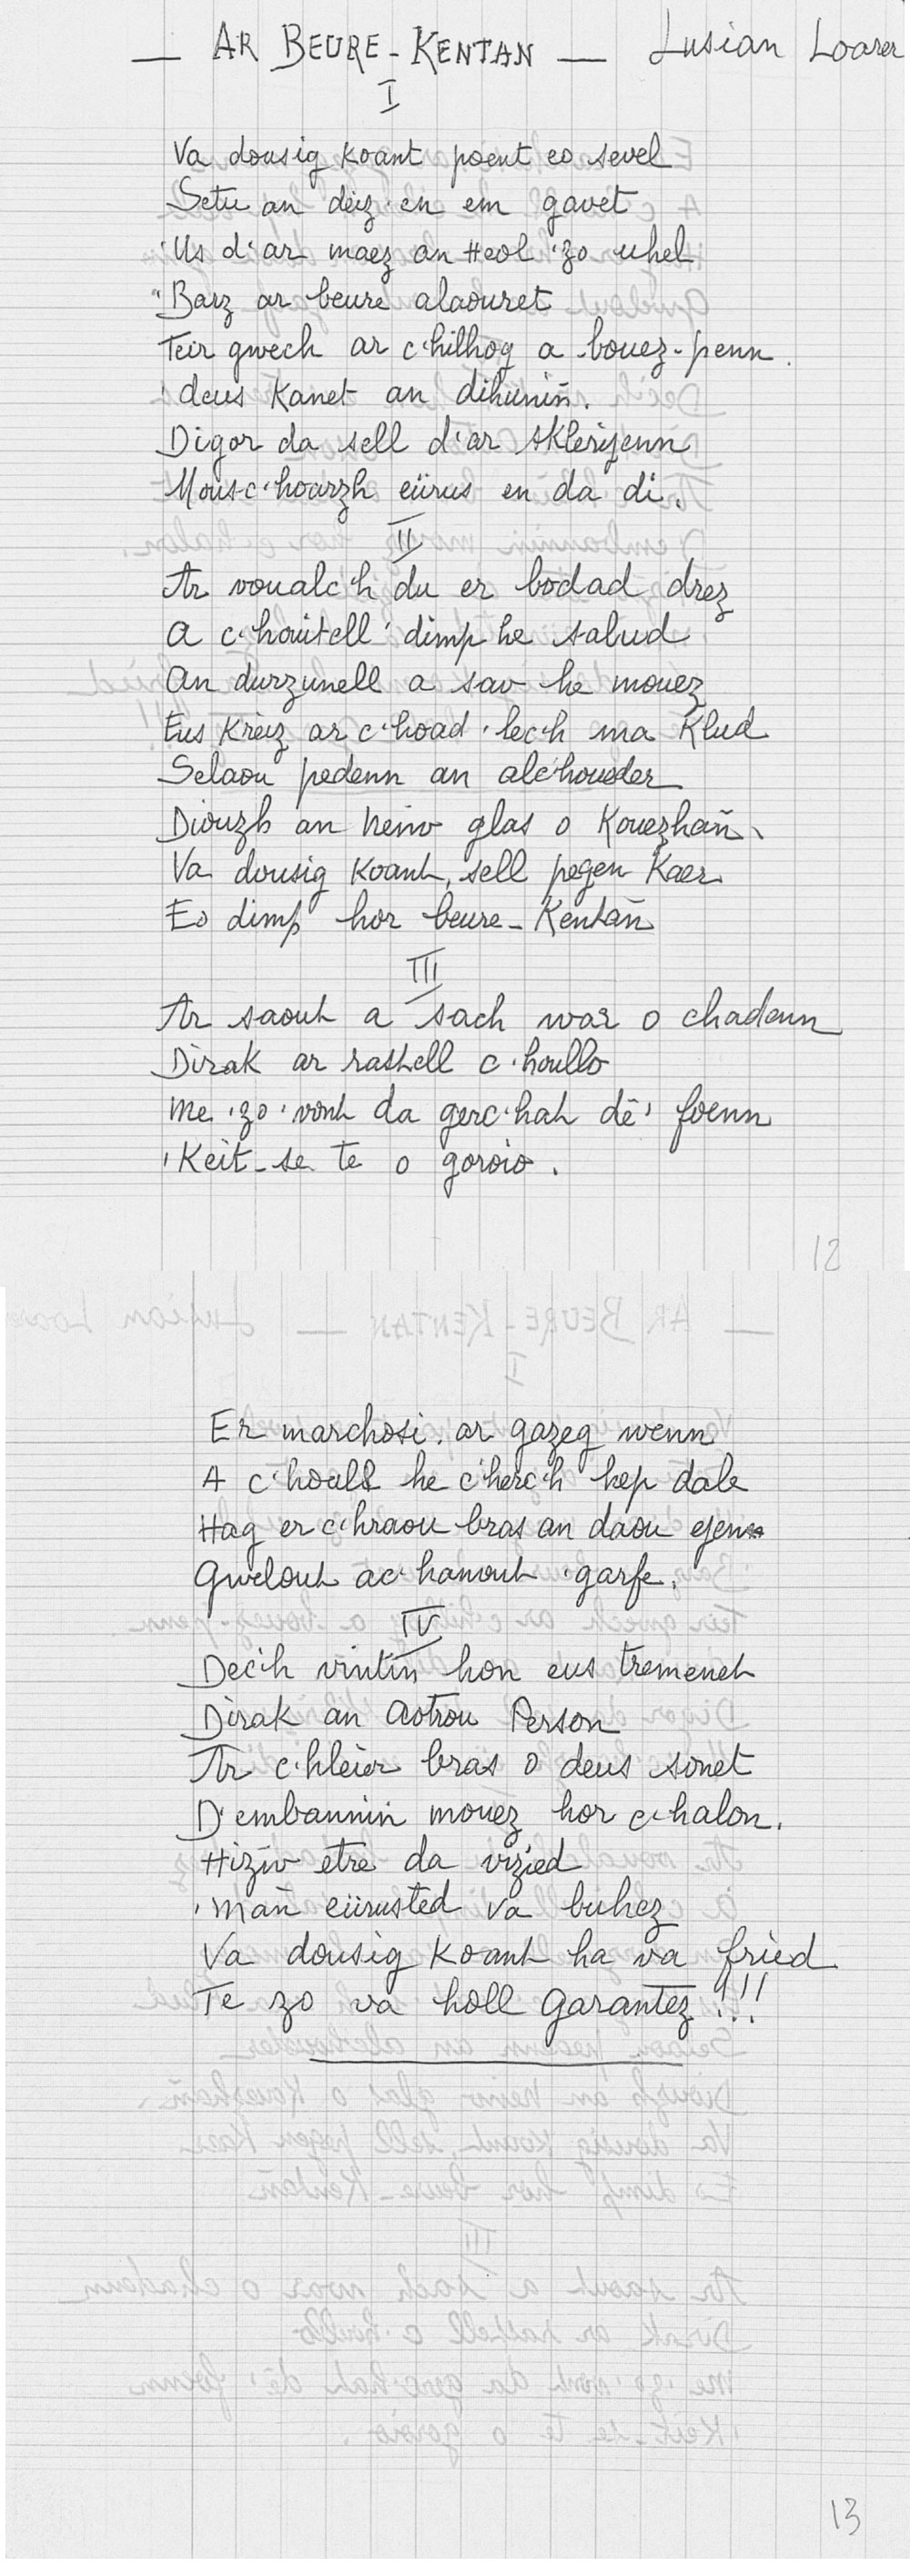 — AR BEURE-KENTAN — Lusian Loarer
I
Va dousig koant poent eo sevel
Setu an deiz en em gavet
'Us d'ar maez an Heol 'zo uhel
"Barz ar beure alaouret
Teir gwech ar c'hilhog a bouez-penn.
'deus kanet an dihuniñ.
Digor da sell d'ar sklerijenn
Mousc'hoarzh eürus en da di.
II
Ar voualc'h du er bodad drez
A c'houitell' dimp he salud
An durzunell a sav he mouez
Eus kreiz ar c'hoad 'lec'h ma klud
Selaou pedenn an alc'houeder
Diouzh an neñv glas o kouezhañ.
Va dousig koant, sell pegen kaer
Eo dimp hor beure-kentañ
III
Ar saout a sach war o chadenn
Dirak ar rastell c'houllo
Me 'zo 'vont da gerc'hat dê' foenn
'Keit-se te o goroio.
12
Er marchosi. ar gazeg wenn
A c'houll he c'herc'h hep dale
Hag er c'hraou bras an daou ejen
Gwelout ac'hanout 'garfe.
IV
Dec'h vintin hon eus tremenet
Dirak an Aotrou Person
Ar c'hleier bras o deus sonet
D'embannin mouez hor c'halon.
Hiziv etre da vizied
'mañ eürusted va buhez
Va dousig koant ha va fried
Te zo va holl garantez !!!
13